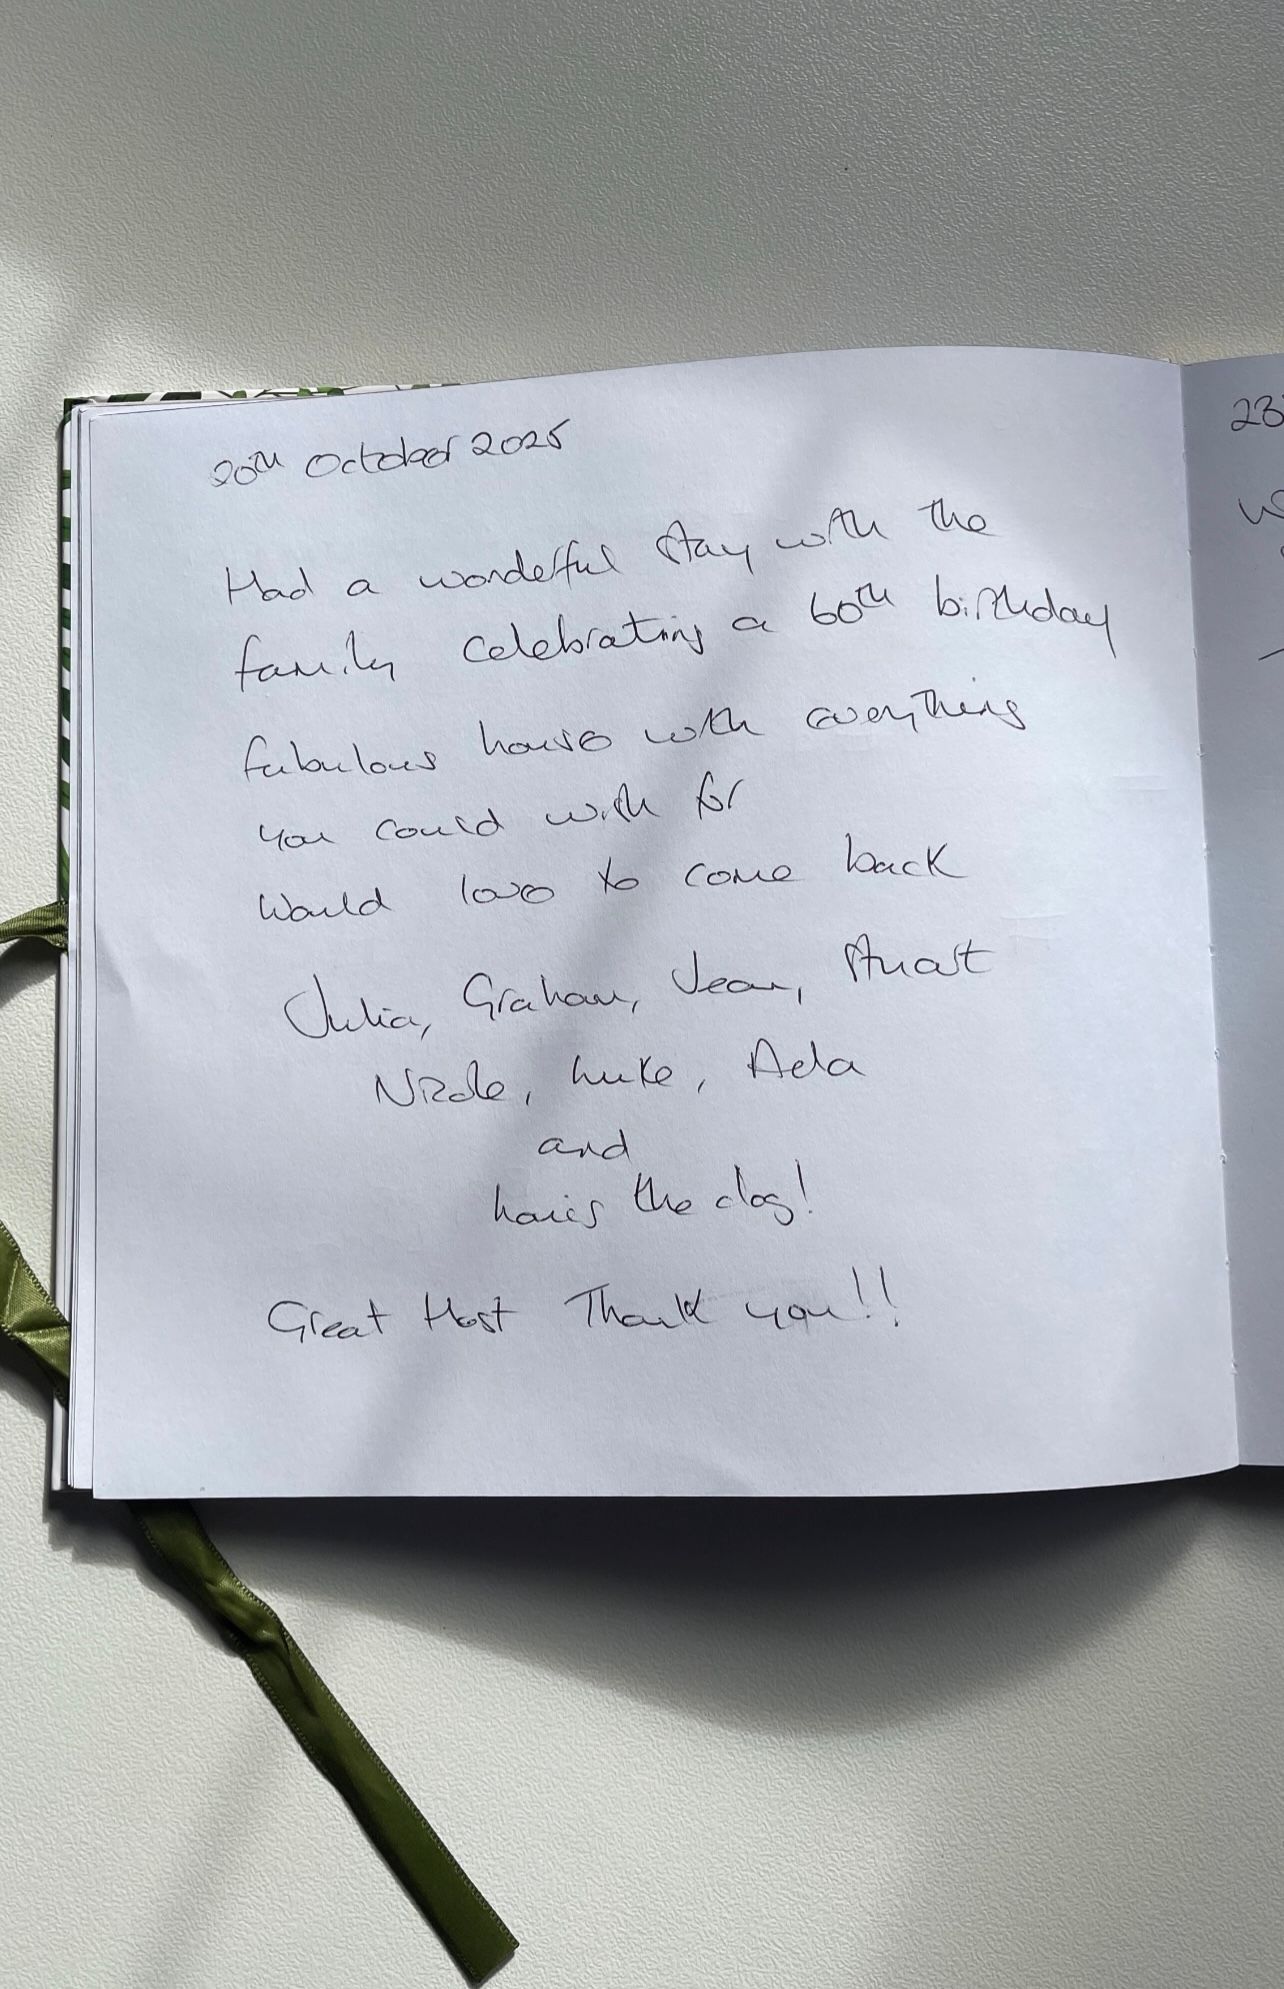 20th October 2025
Had a wonderful stay with the
family celebrating a 60th birthday
fabulous house with everything
you could wish for
Would love to come back
Julia, Graham, Jean, Stuart
Nicole, Luke, Ada
and
the dog!
Great Host Thank you!!
23